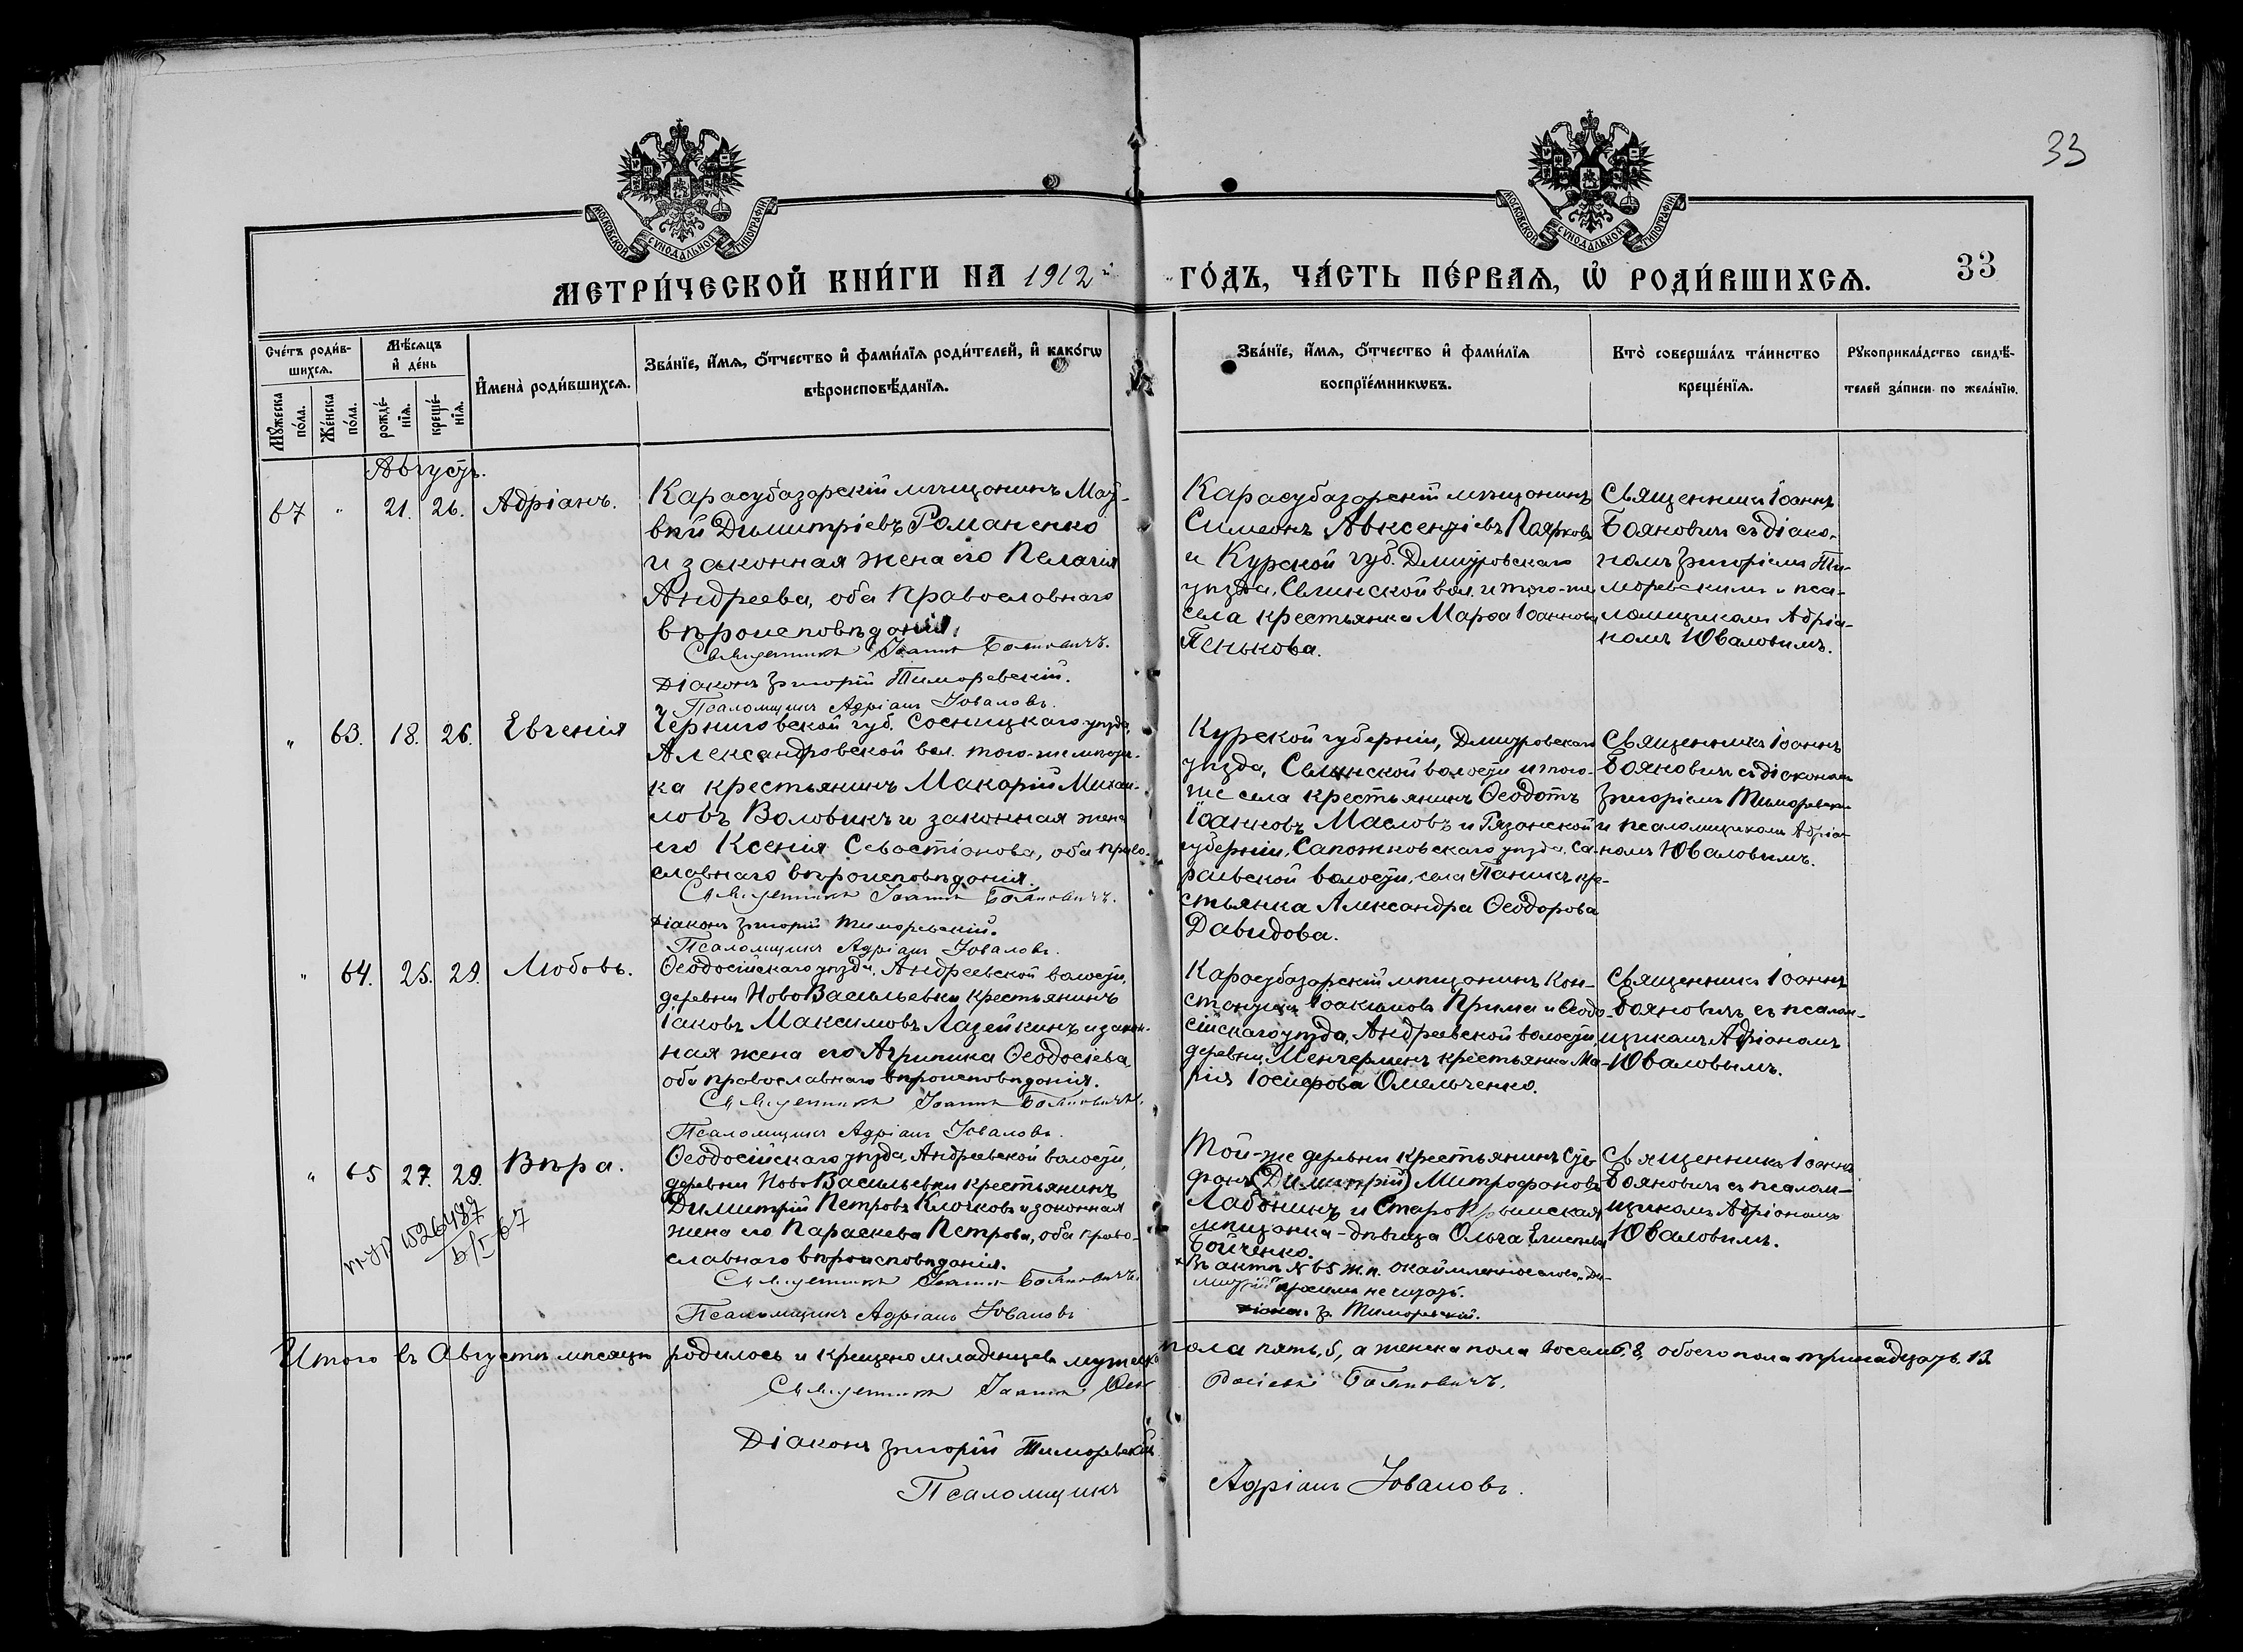 33
МОСКОВСКОЙ СѴНОДАЛЬНОЙ ТИПОГРАФІИ
МОСКОВСКОЙ СѴНОДАЛЬНОЙ ТИПОГРАФІИ
МЕТРИ́ЧЕСКОЙ КНИ́ГИ НА 1912й ГО́ДЪ, ЧА́СТЬ ПЕ́РВАЯ, Ѡ РОДИ́ВШИХСЯ. 33
Сче́тъ роди́в-
шихся.
Мѣ́сяцъ
и де́нь
Мꙋ́жеска
по́ла.
Же́нска
по́ла.
рожде́-
нїя.
креще́-
нїя.
Имена̀ роди́вшихся.
Зва́нїе, и́мя, о́тчество и фами́лїя роди́телей, и како́гѡ
вѣроисповѣ́данїя.
Зва́нїе, и́мя, о́тчество и фами́лїя
воспрїе́мникѡвъ.
Кто̀ соверша́лъ та́инство
креще́нїя.
Рꙋкоприкла́дство свидѣ́-
телей за́писи по жела́нїю.
Августъ.
67 " 21. 26. Адріанъ.
Карасубазарскій мѣщанинъ Мат-
вѣй Димитріевъ Романенко
и законная жена его Пелагія
Андреева, оба Православнаго
вѣроисповѣданія.
Священникъ Іоаннъ Бояновичъ.
Діаконъ Григорій Тиморевскій.
Псаломщикъ Адріанъ Юваловъ.
Карасубазарскій мѣщанинъ
Симеонъ Авксентіевъ Поярковъ
и Курской губ. Дмитровскаго
уѣзда, Селинской вол. и того-же
села крестьянка Марѳа Іоаннова
Пенькова.
Священникъ Іоаннъ
Бояновичъ съ діако-
номъ Григоріемъ Ти-
моревскимъ и пса-
ломщикомъ Адріа-
номъ Юваловымъ.
" 63. 18. 26. Евгенія
Черниговской губ. Сосницкаго уѣзда,
Александровской вол. того-же мѣстеч-
ка крестьянинъ Макарій Михаи-
ловъ Воловикъ и законная жена
его Ксенія Севастіанова, оба право-
славнаго вѣроисповѣданія.
Священникъ Іоаннъ Бояновичъ.
Діаконъ Григорій Тиморевскій.
Псаломщикъ Адріанъ Юваловъ.
Курской губерніи, Дмитровскаго
уѣзда, Селинской волости и того-
же села крестьянинъ Ѳеодотъ
Іоанновъ Масловъ и Рязанской
губерніи, Сапожковскаго уѣзда, Са-
раевской волости, села Паникъ кре-
стьянка Александра Ѳеодорова
Давидова.
Священникъ Іоаннъ
Бояновичъ съ діакономъ
Григоріемъ Тиморевски-
и псаломщикомъ Адріа-
номъ Юваловымъ.
" 64. 25. 29. Любовь.
Ѳеодосійскаго уѣзда, Андреевской волости,
деревни НовоВасильевки крестьянинъ
Іаковъ Максимовъ Лазейкинъ и закон-
ная жена его Агрипина Ѳеодосіева,
оба православнаго вѣроисповѣданія.
Священникъ Іоаннъ Бояновичъ.
Псаломщикъ Адріанъ Юваловъ.
Карасубазарскій мѣщанинъ Кон-
стантинъ Іоакимовъ Прима и Ѳеодо-
сійскаго уѣзда, Андреевской волости,
деревни Менгерменъ крестьянка Ма-
рія Іосифова Омельченко.
Священникъ Іоаннъ
Бояновичъ съ псалом-
щикомъ Адріаномъ
Юваловымъ.
" 65 27. 29. Вѣра.
1526487
Ѳеодосійскаго уѣзда, Андреевской волости,
деревни НовоВасильевки крестьянинъ
Димитрій Петровъ Клочковъ и законная
жена его Параскева Петрова, оба право-
славнаго вѣроисповѣданія.
Священникъ Іоаннъ Бояновичъ.
Псаломщикъ Адріанъ Юваловъ
Той-же деревни крестьянинъ Сте-
фанъ (Димитрій) Митрофановъ
Лабонинъ и СтароКрымская
мѣщанка-дѣвица Ольга
Бойченко.
× Въ актѣ № 65 ж.п. окаймленное слово „Ди-
митрій" просимъ не читать.
Діаконъ Г. Тиморевскій.
Священникъ Іоаннъ
Бояновичъ съ псалом-
щикомъ Адріаномъ
Юваловымъ.
Итого въ Августѣ мѣсяцѣ родилось и крещено младенцевъ мужска пола пять, 5, а женска пола восемь, 8, обоего пола тринадцать. 13.
Священникъ Іоаннъ Бояновичъ.
Діаконъ Григорій Тиморевскій
Псаломщикъ Адріанъ Юваловъ.